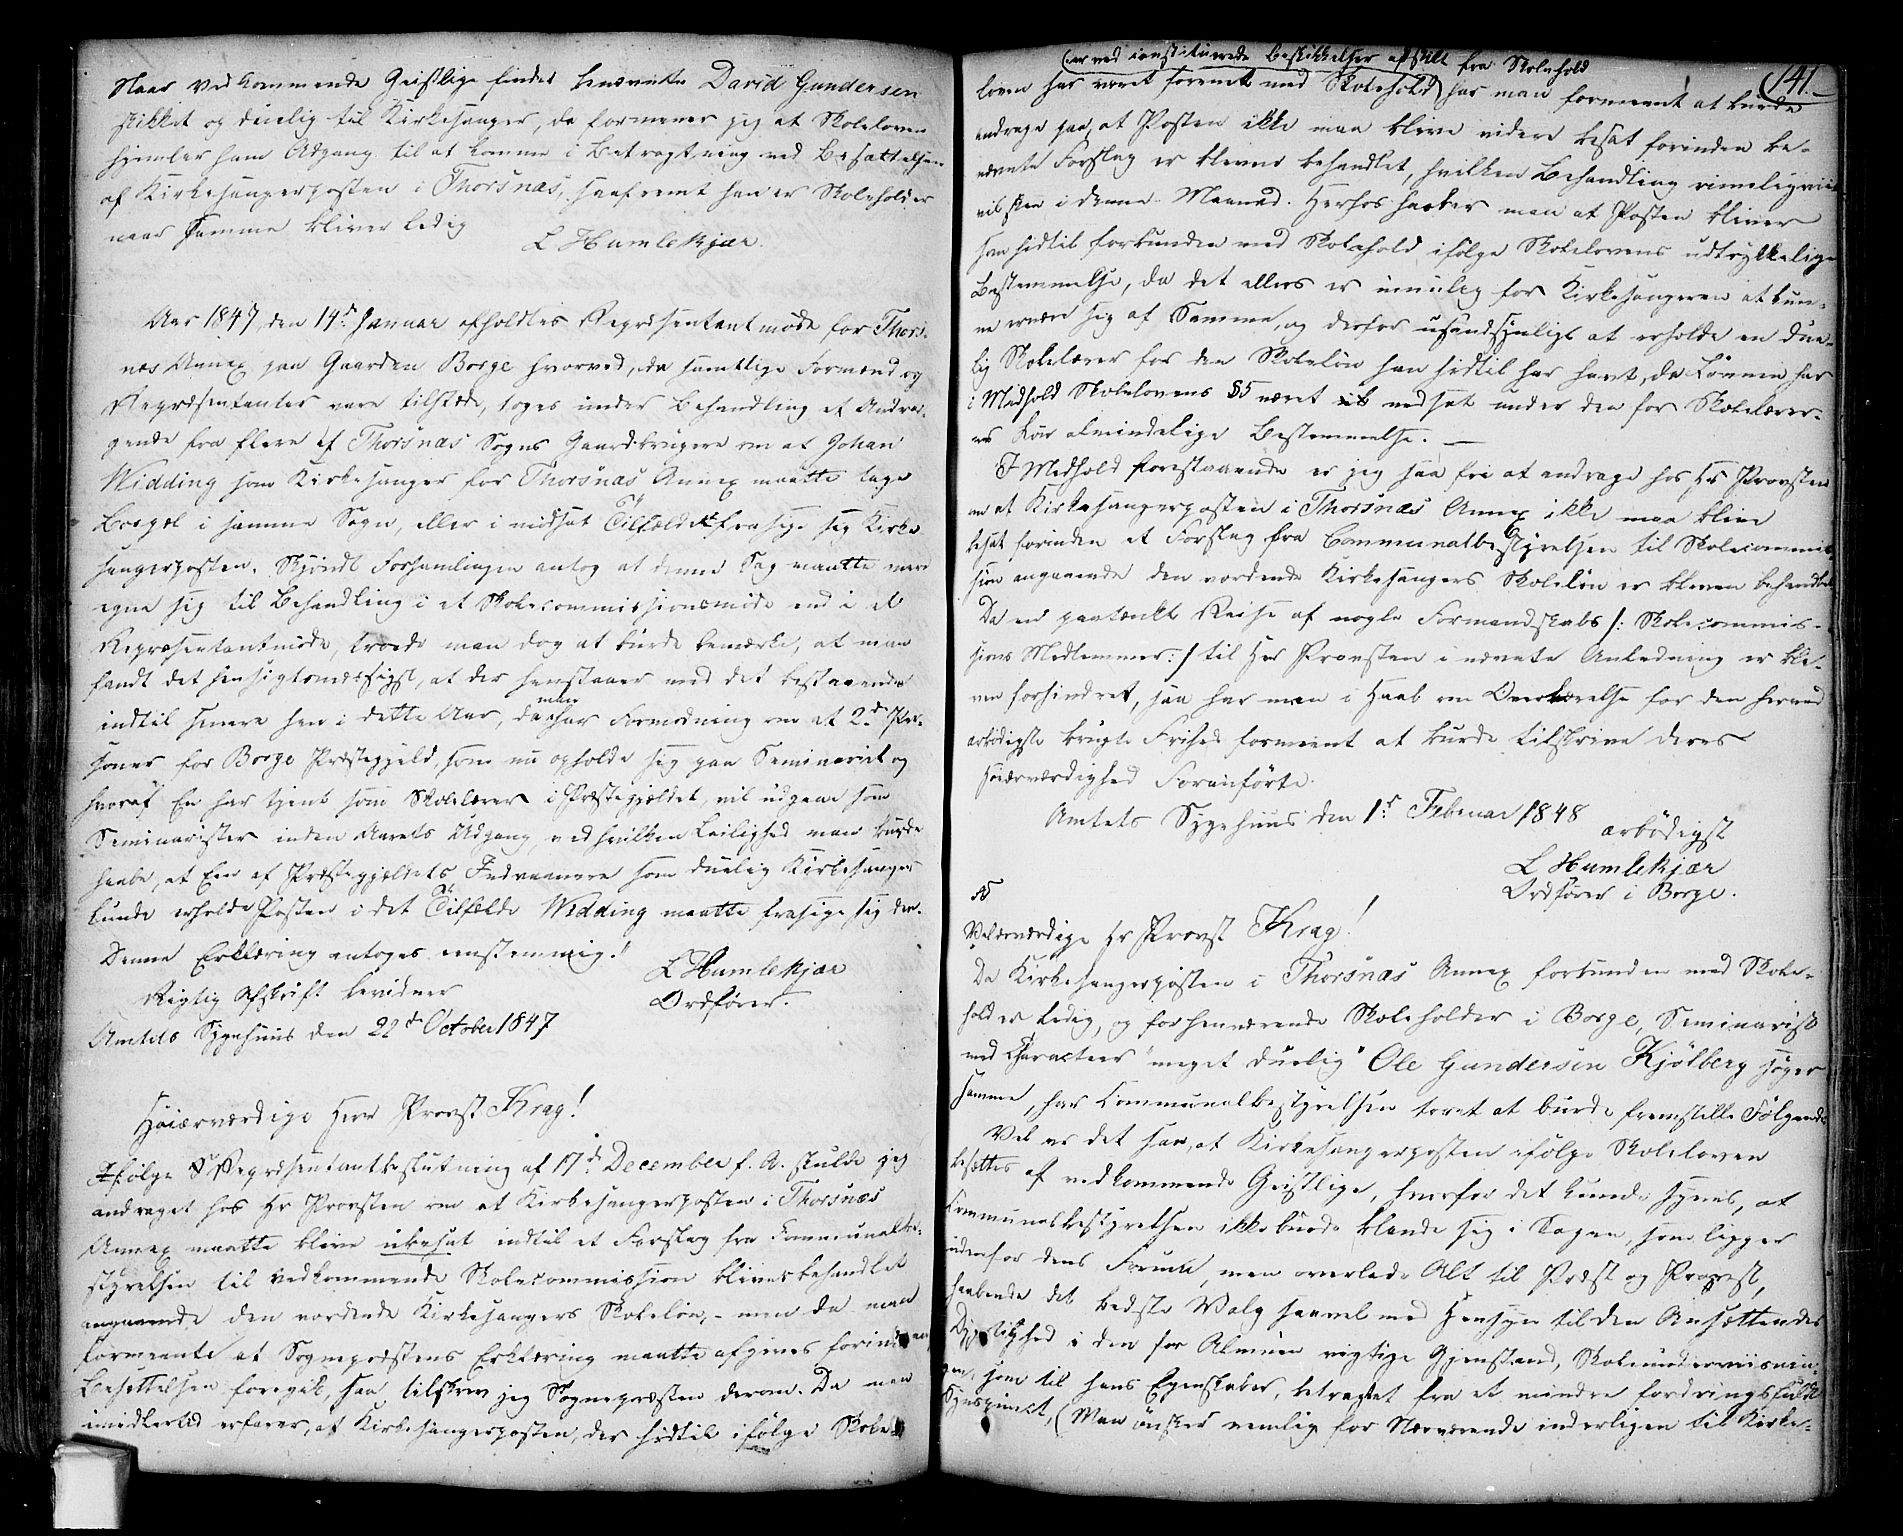 Naar Vedkommende Geistlige finder benævnte David Gundersen
skikket og duelig til Kirkesanger, da formener jeg at Skoleloven
hjemler ham Adgang til at komme i Betragtning ved Besættelsen
af Kirkesangerposten i Thorsnæs, saafremt han er Skoleholder
naar Samme bliver ledig
L Humlekjær.
Aar 1847 den 14d Januar afholdtes Repræsentantmøde for Thors-
næs Annex paa Gaarden Borge hvorved, da samtlige Formænd og
Repræsentanter vare tilstede, toges under Behandling et Andra-
gende fra flere af Thorsnæs Sogns Gaardbrugere om at Johan
Widding som Kirkesanger for Thorsnæs Annex maatte tage
Bopæl i samme Sogn, eller i modsat Tilfælde frasige sig Kirke
sangerposten. Skjöndt Forsamlingen antog at denne Sag maatte mere
egne sig til Behandling i et Skolecommissionsmöde end i et
Repræsentantmöde, troede man dog at burde bemærke, at man
fandt det hensigtsmæssigst, at der henstaaer med det bestaaende
indtil senere hen i dette Aar, da man har Formodning om at 2de Per-
soner for Borge Præstegjeld, som nu opholde sig paa Seminariet og
hvoraf En har tjent som Skolelærer i Præstegjeldet, vil udgaae som
Seminarister inden Aarets Udgang, ved hvilken Leilighed man burde
haabe, at Een af Præstegjeldets Indvaanere som duelig Kirkesanger
kunde erholde Posten i det Tilfælde Widding maatte frasige sig den.
Denne Erklæring antoges eenstemmig!
L Humlekjær
Ordförer.
Rigtig Afskrift bevidner
Amtets Sygehuus den 22d October 1847
Höiærværdige Herr Provst Krag!
Ifölge Repræsentantbeslutning af 17d December f. A. skulde jeg
andraget hos Hr Provsten om at Kirkesangerposten i Thorsnæs
Annex maatte blive ubesat indtil et Forslag fra Communalbe-
styrelsen til Vedkommende Skolecommission bliver behandlet
angaaende den vordende Kirkesangers Skoleløn, - men da man
formeente at Sognepræstens Erklæring maatte afgives forinden
Besættelsen foregik, saa tilskrev jeg Sognepræsten derom. Da man
imidlertid erfarer, at Kirkesangerposten, der hidtil ifölge Skole
141.
(er ved constituerede Beskikkelser adskilt fra Skolehold
loven har været forenet med Skolehold) har man formeent at burde
andrage paa, at Posten ikke maa blive videre besat forinden be-
nævnte Forslag er bleven behandlet, hvilken Behandling rimeligviis
vil skee i denne Maaned. Herhos haaber man at Posten bliver
som hidtil forbunden med Skolehold ifölge Skolelovens udtrykkelige
Bestemmelse, da det ellers er umulig for Kirkesangeren at kun-
ne ernære sig af Samme, og derfor usandsynligt at erholde en due-
lig Skolelærer for den Skoleløn han hidtil har havt, da Lønnen har
i Medhold Skolelovens §5 været nedsat under den for Skolelærer-
nes Løn almindelige Bestemmelse. —
I Medhold forestaaende er jeg saa fri at andrage hos Hr Provsten
om at Kirkesangerposten i Thorsnæs Annex ikke maa blive
besat forinden et Forslag fra Communalbestyrelsen til Skolecommis
sion angaaende den vordende Kirkesangers Skoleløn er bleven behandlet
Da en paatænkt Reise af nogle Formandskabs /: Skolecommis-
sions Medlemmer :/ til Her Provsten i nævnte Anledning er ble-
ven forhindret, saa har man i Haab om Overbærelse for den herved
ærbödigste brugte Frihed formeent at burde tilskrive Deres
Höiærværdighed Foranförte.
Amtets Sygehuus den 1d Februar 1848
ærbödigst
L Humlekjær
Ordförer i Borge.
Velærværdige Hr Provst Krag!
Da Kirkesangerposten i Thorsnæs Annex forbunden med Skole-
hold er ledig, og forhenværende Skoleholder i Borge, Seminarist
med Characteer "meget duelig" Ole Gundersen Kjölberg söger
samme, har Communalbestyrelsen troet at burde fremstille Fölgende
Vel er det saa, at Kirkesangerposten ifölge Skoleloven
besættes af vedkommende Geistlige, hvorfor det kunde synes, at
Communebestyrelsen ikke burde blande sig i Sagen, som ligger
udenfor dens Forum, men overlade Alt til Præst og Provst,
haabende det bedste Valg saavel med Hensyn til den Ansættendes
Dygtighed i den for Almuen vigtige Gjenstand, Skoleunderviisnin
gen, som til hans Egenskaber, betragtet fra et mindre fordringsfuldt
Synspunct, (Man önsker nemlig for Nærværende inderligen til Kirke-